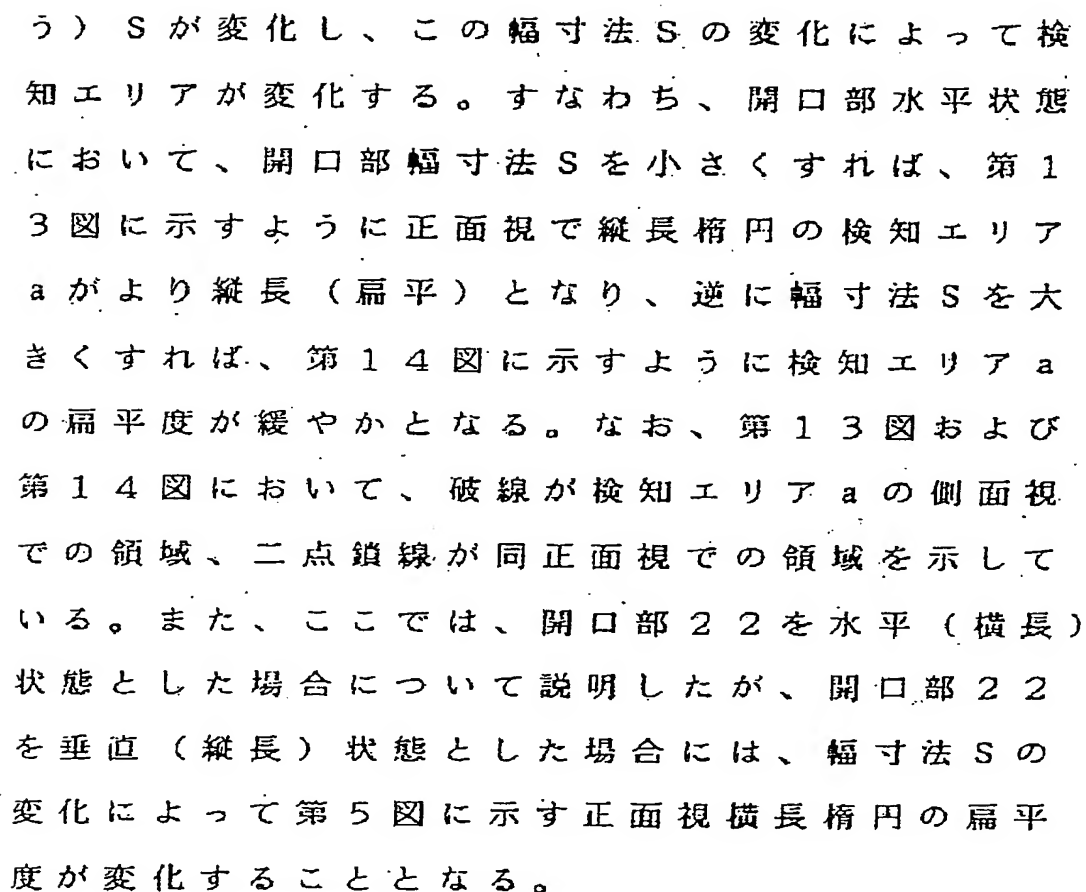 う）Sが変化し、この幅寸法Sの変化によって検
知エリアが変化する。すなわち、開口部水平状態
において、開口部幅寸法Sを小さくすれば、第1
3図に示すように正面視で縦長楕円の検知エリア
aがより縦長（扁平）となり、逆に幅寸法Sを大
きくすれば、第14図に示すように検知エリアa
の扁平度が緩やかとなる。なお、第13図および
第14図において、破線が検知エリアaの側面視
での領域、二点鎖線が同正面視での領域を示して
いる。また、ここでは、開口部22を水平（横長）
状態とした場合について説明したが、開口部22
を垂直（縦長）状態とした場合には、幅寸法Sの
変化によって第5図に示す正面視横長楕円の扁平
度が変化することとなる。